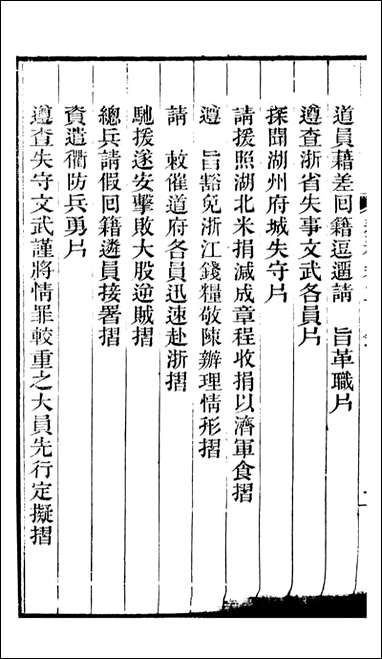 道員藉差回籍逗遛請　旨革職片
遵查浙省失事文武各員片
探聞湖州府城失守片
請援照湖北米捐減成章程收捐以濟軍食摺
遵　旨豁免浙江錢糧敬陳辦理情形摺
請　敕催道府各員迅速赴浙摺
馳援遂安擊敗大股逆賊摺
總兵請假回籍遴員接署摺
資遣衢防兵勇片
遵查失守文武謹將情罪較重之大員先行定擬摺